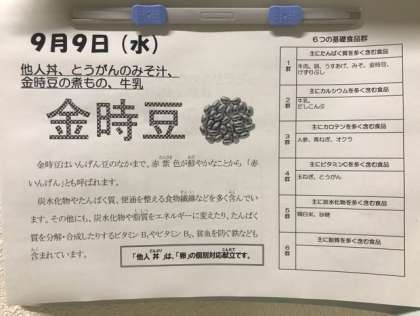 9月9日（水）
他人丼、とうがんのみそ汁、
金時豆の煮もの、牛乳
金時豆
金時豆はいんげん豆のなかまで、赤紫色が鮮やかなことから「赤
いんげん」とも呼ばれます。
炭水化物やたんぱく質、便通を整える食物繊維などを多く含んでい
ます。その他にも、炭水化物や脂質をエネルギーに変えたり、たんぱく
質を分解・合成したりするビタミンB₁やビタミンB₂、貧血を防ぐ鉄なども
含まれています。
「他人丼」は、「卵」の個別対応献立です。
6つの基礎食品群
主にたんぱく質を多く含む食品
1群
牛肉、卵、うすあげ、みそ、金時豆、
けずりぶし
主にカルシウムを多く含む食品
2群
牛乳、
だしこんぶ
主にカロテンを多く含む食品
3群
人参、青ねぎ、オクラ
主にビタミンCを多く含む食品
4群
玉ねぎ、とうがん
主に炭水化物を多く含む食品
5群
精白米、砂糖
主に脂質を多く含む食品
6群